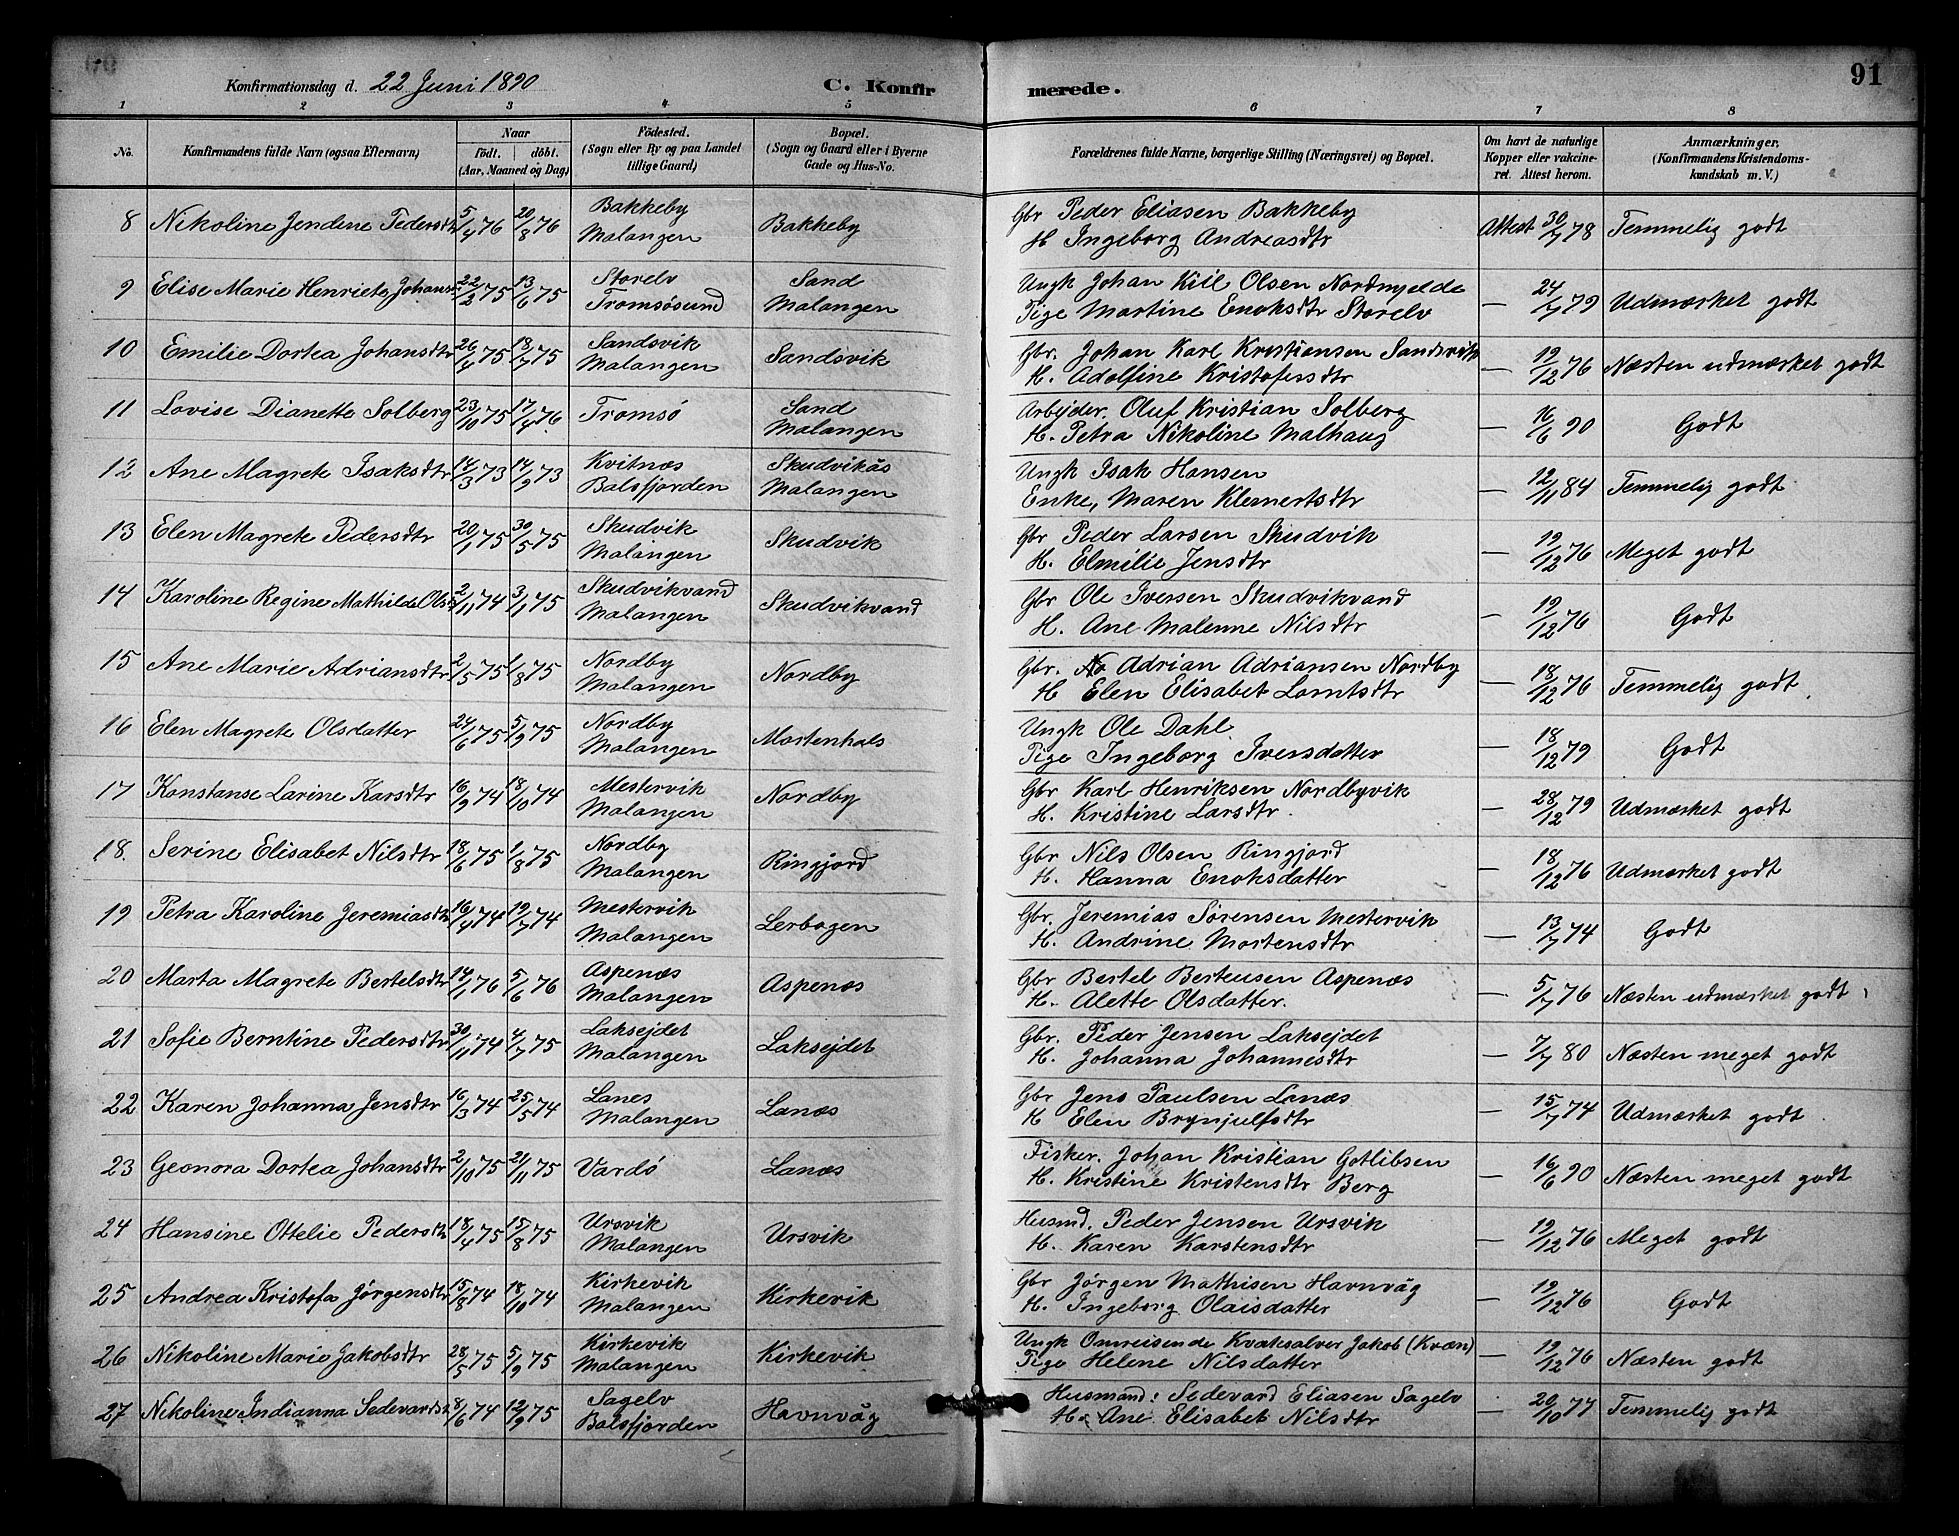 91
Konfirmationsdag d. 22 Juni 1890 C. Konfirmerede.
1 2 3 4 5 6 7 8
No.
Konfirmandens fulde Navn (ogsaa Efternavn)
Naar
födt. döbt.
(Aar, Maaned og Dag)
Födested.
(Sogn eller By og paa Landet
tillige Gaard)
Bopæl.
(Sogn og Gaard eller i Byerne
Gade og Hus-No.
Forældrenes fulde Navne, borgerlige Stilling (Næringsvei) og Bopæl.
Om havt de naturlige
Kopper eller vakcine-
ret. Attest herom.
Anmærkninger.
(Konfirmandens Kristendoms-
kundskab m. V.)
8 Nikoline Jendene Pedersdtr 5/4 76 20/8 76 Bakkeby Malangen Bakkeby Gbr Peder Eliasen Bakkeby
H Ingeborg Andreasdtr Attest 30/7 78 Temmelig godt
9 Elise Marie Henriete Johansdtr 22/2 75 13/6 75 Storelv Tromsøsund Sand Malangen Ungk Johan Kiil Olsen Nordmjelde
Pige Martine Enoksdtr Storelv — 24/7 79 Udmærket godt
10 Emilie Dortea Johansdtr 26/4 75 18/7 75 Sandsvik Malangen Sandsvik Gbr. Johan Karl Kristiansen Sandsvik
H. Adolfine Kristofersdtr — 19/12 76 Næsten udmærket godt
11 Lovise Dianette Solberg 23/10 75 17/4 76 Tromsø Sand Malangen Arbejder. Oluf Kristian Solberg
H. Petra Nikoline Malhaug — 16/6 90 Godt
12 Ane Magrete Isaksdtr 14/3 73 14/9 73 Kvitnæs Balsfjorden Skudvikås Malangen Ungk Isak Hansen
Enke, Maren Klemertsdtr — 12/11 84 Temmelig godt
13 Elen Magrete Pedersdtr 20/1 75 30/5 75 Skudvik Malangen Skudvik Gbr Peder Larsen Skudvik
H. Elmilie Jensdtr — 19/12 76 Meget godt
14 Karoline Regine Mathilde Olsd 2/11 74 3/1 75 Skudvikvand Malangen Skudvikvand Gbr Ole Iversen Skudvikvand
H. Ane Malenne Nilsdtr — 19/12 76 Godt
15 Ane Marie Adriansdtr 2/5 75 1/8 75 Nordby Malangen Nordby Gbr. No Adrian Adriansen Nordby
H Elen Elisabet Lorntsdtr — 18/12 76 Temmelig godt
16 Elen Magrete Olsdatter 24/6 75 5/9 75 Nordby Malangen Mortenhals Ungk Ole Dahl
Pige Ingeborg Iversdatter — 18/12 79 Godt
17 Konstanse Larine Karsdtr 16/9 74 18/10 74 Mestervik Malangen Nordby Gbr Karl Henriksen Nordbyvik
H. Kristine Larsdtr. — 28/12 79 Udmærket godt
18. Serine Elisabet Nilsdtr 18/6 75 1/8 75 Nordby Malangen Ringjord Gbr Nils Olsen Ringjord
H. Hanna Enoksdatter — 18/12 76 Udmærket godt
19 Petra Karoline Jeremiasdtr 16/4 74 19/7 74 Mestervik Malangen Lerbogen Gbr. Jeremias Sørensen Mestervik
H. Andrine Mortensdtr — 13/7 74 Godt
20 Marta Magrete Bertelsdtr 14/1 76 5/6 76 Aspenæs Malangen Aspenæs Gbr Bertel Berteusen Aspenæs
H. Alette Olsdatter. — 5/7 76 Næsten udmærket godt
21 Sofie Berntine Pedersdtr 30/11 74 4/7 75 Laksejdet Malangen Laksejdet Gbr. Peder Jensen Laksejdet
H. Johanna Johannesdtr — 7/7 80 Næsten meget godt
22 Karen Johanna Jensdtr 16/3 74 25/5 74 Lanes Malangen Lanæs Gbr Jens Paulsen Lanæs
H Elen Brynjulfsdtr — 15/7 74 Udmærket godt
23 Geonora Dortea Johansdtr 2/10 75 21/11 75 Vardø Lanæs Fisker. Johan Kristian Gotlibsen
H. Kristine Kristensdtr Berg — 16/6 90 Næsten meget godt
24 Hansine Ottelie Pedersdtr 18/4 75 15/8 75 Ursvik Malangen Ursvik Husmd. Peder Jensen Ursvik
H. Karen Karstensdtr — 19/12 76 Meget godt
25 Andrea Kristofa Jørgensdtr 15/8 74 18/10 74 Kirkevik Malangen Kirkevik Gbr Jørgen Mathisen Havnvåg
H. Ingeborg Olaisdatter — 19/12 76 Godt
26 Nikoline Marie Jakobsdtr 28/5 75 5/9 75 Kirkevik Malangen Kirkevik Ungk Omreisende Kvaksalver Jakob (Kvæn)
Pige Helene Nilsdatter — 19/12 76 Næsten godt
27 Nikoline Indianna Sedevardsd 8/6 74 12/9 75 Sagelv Balsfjorden Havnvåg Husmand: Sedevard Eliasen Sagelv
H. Ane Elisabet Nilsdtr — 20/10 77 Temmelig godt